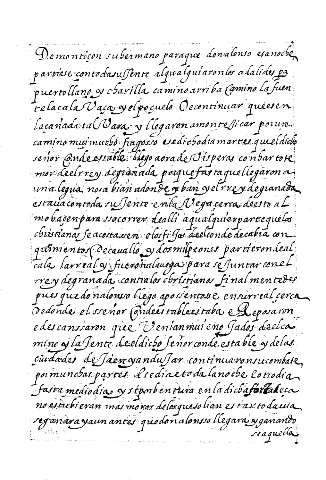 Demonticon suhermano paraque donalonso esanoche
paroiese contoda su Jente al qual guiaron los adalides pa
puertollano y charilla camino arriba camino la fuen
te la cala Vaça y el poçuelo De continuar que es en
la cañada tal Vara y llegaron a montesicar por un
camino mui mucho fragosso ese dicho dia martes que el dicho
señor Conde estable llego a ora de Visperas combar to te
mor del rrey de granada porque fasta que llegaron a
una legua nos abian adonde yban y el rrey de granada
estaua con toda su Jente en la Vega cerca desto al
mohacen para ssocorrer de alli a qualquier parte que los
christianos se acostasen el os fijos del conde de cabra con
quinientos De cauallo y dos mil peones partieron de al
cala la rreal y fueron la uega para se juntar con el
rrey de granada contra los christianos finalmente des
pues que don alonso llego aposentose en su rreal cerca
De donde el sseñor Conde estable estaba e Reposaron
e descanssaron que Venian mui enojados de el ca
mino y la Jente del dicho Señor conde estable y de las
ciudades de Jaen y andujar continuaron su combate
por muchas partes Ese dia e toda la noche e otro dia
fasta medio dia y si por bentura en la dicha fortaleça
no estubieran mas moros de los que solian estar toda uia
se ganara y aun antes que don alonsso llegara y ganando
se aquella